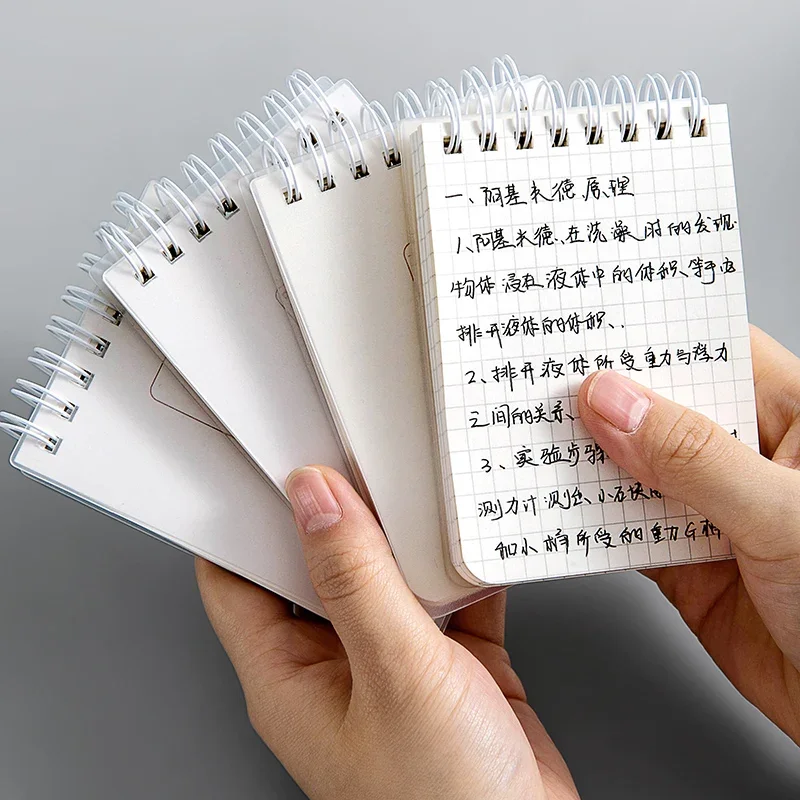 一、阿基米德原理
1、阿基米德、在洗澡时的发现.
物体浸在液体中的体积、等于它
排开液体的体积、.
2、排开液体所受重力与浮力
之间的关系、
3、实验步骤
测力计测出、小石块
和小桶所受的重力G桶